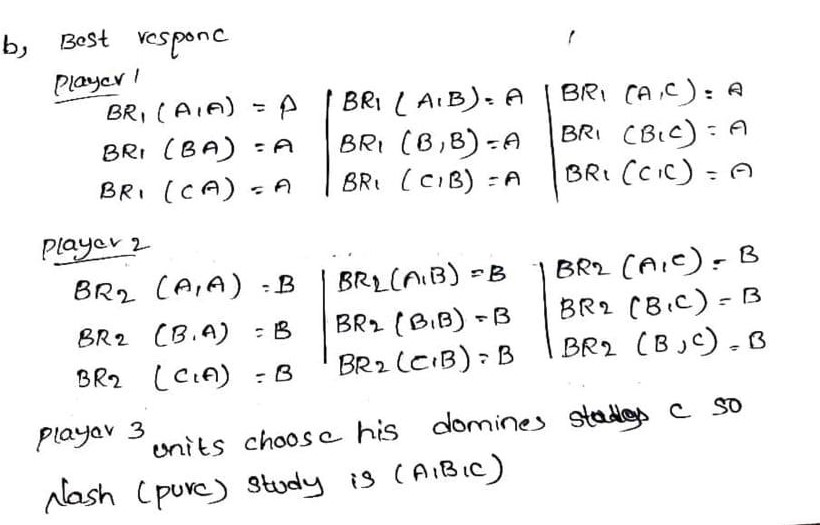 b, Best responc
Player 1
BR1 (A,A) = A | BR1 (A,B) = A | BR1 (A,C) = A
BR1 (BA) = A | BR1 (B,B) = A | BR1 (B,C) = A
BR1 (CA) = A | BR1 (C,B) = A | BR1 (C,C) = A
Player 2
BR2 (A,A) = B | BR2 (A,B) = B | BR2 (A,C) = B
BR2 (B.A) = B | BR2 (B,B) = B | BR2 (B,C) = B
BR2 (C,A) = B | BR2 (C,B) = B | BR2 (B,C) = B
Player 3 units choose his domines C so
Nash (pure) study is (A,B,C)